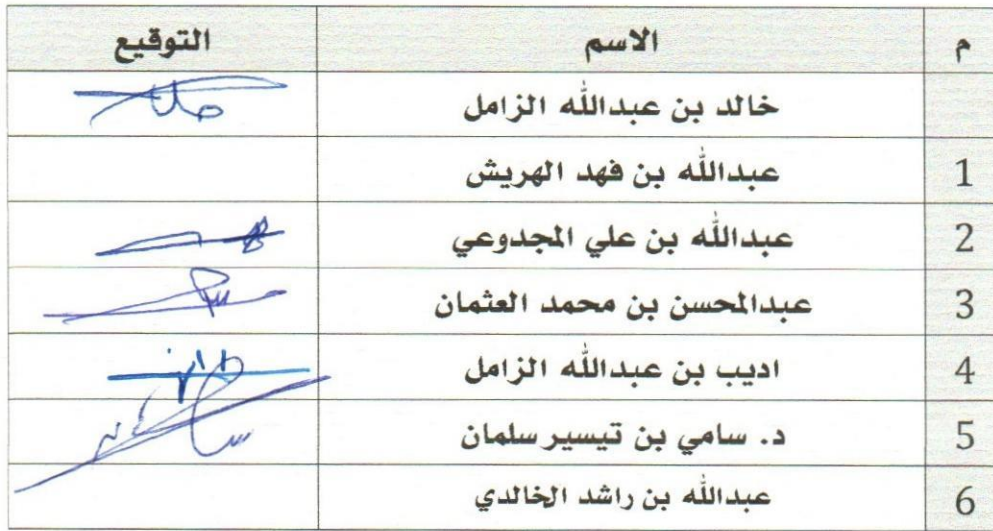 م الاسم التوقيع
خالد بن عبدالله الزامل
1 عبدالله بن فهد الهريش
2 عبدالله بن علي المجدوعي
3 عبدالمحسن بن محمد العثمان
4 اديب بن عبدالله الزامل
5 د. سامي بن تيسير سلمان
6 عبدالله بن راشد الخالدي